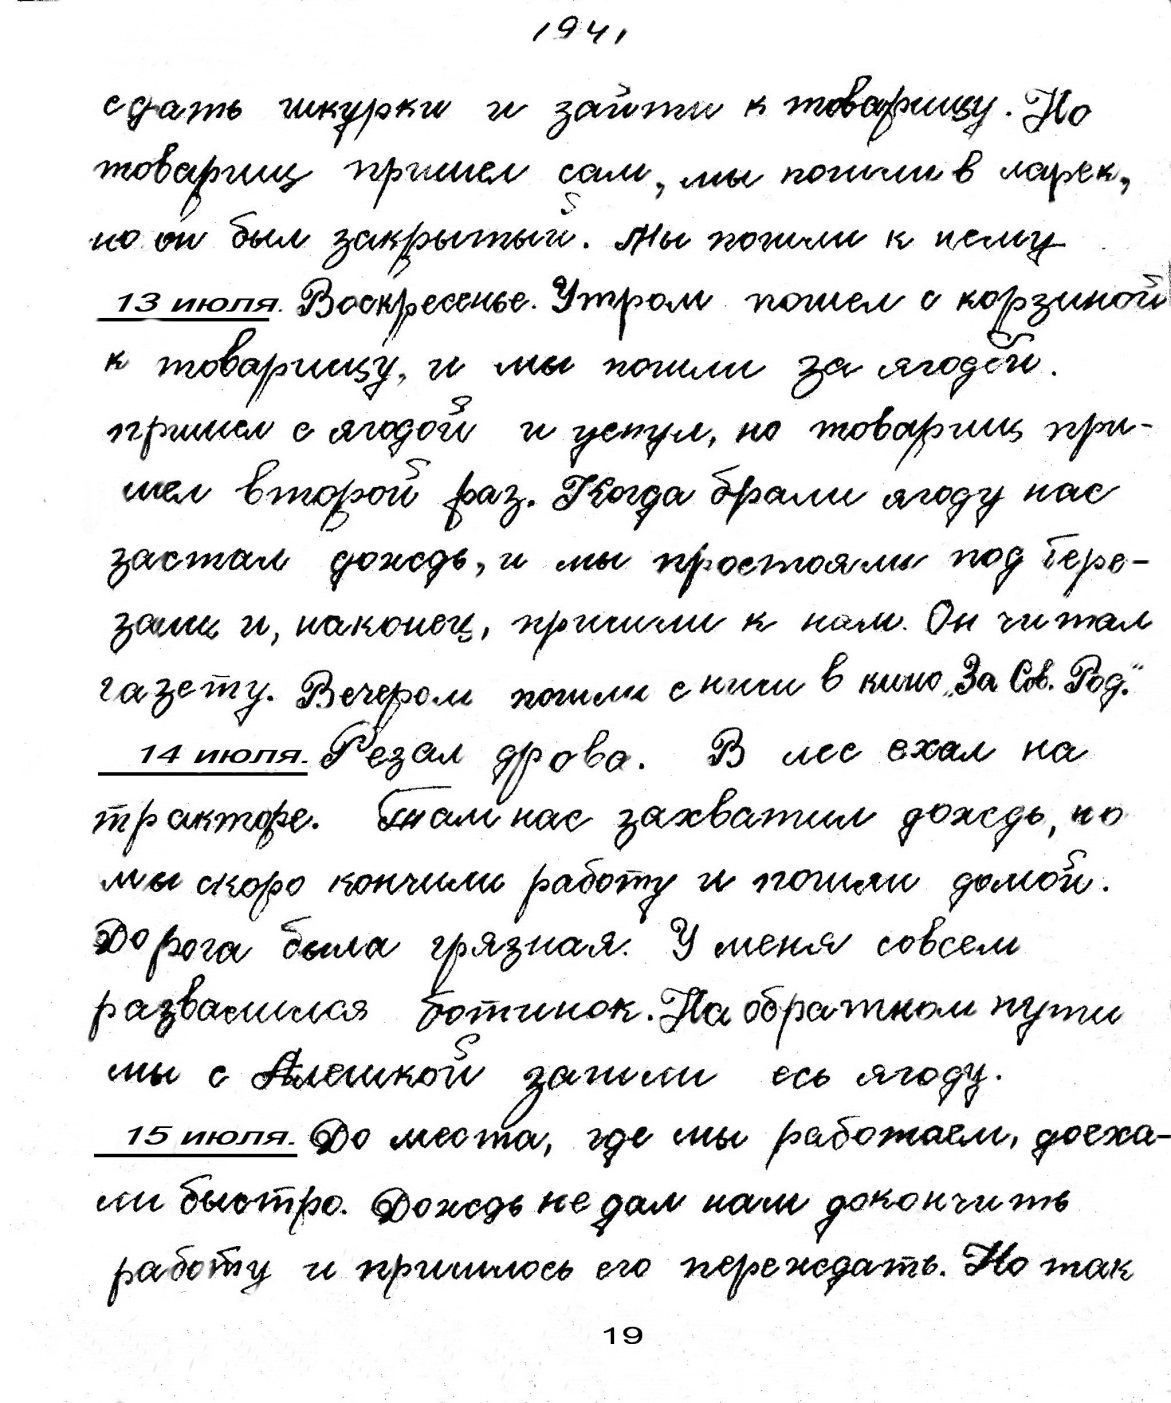 1941
сдать шкурки и зайти к товарищу. Но
товарищ пришел сам, мы пошли в ларек,
но он был закрытый. Мы пошли к нему
13 июля. Воскресенье. Утром пошел с корзиной
к товарищу, и мы пошли за ягодой.
пришел с ягодой и уснул, но товарищ при-
шел второй раз. Когда брали ягоду нас
застал дождь, и мы простояли под бере-
зами и, наконец, пришли к нам. Он читал
газету. Вечером пошли с ними в кино „За Сов. Род."
14 июля. Резал дрова. В лес ехал на
тракторе. Там нас захватил дождь, но
мы скоро кончили работу и пошли домой.
Дорога была грязная. У меня совсем
развалился ботинок. На обратном пути
мы с Алешкой зашли есь ягоду.
15 июля. До места, где мы работаем, доеха-
ли быстро. Дождь не дал нам докончить
работу и пришлось его переждать. Но так
19